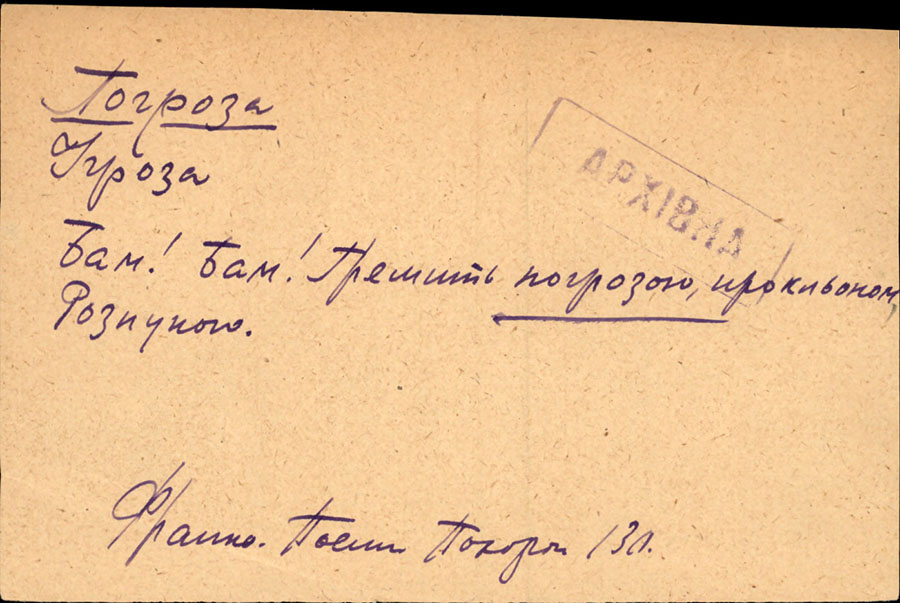 Погроза
Угроза
АРХІВНА
Бам! Бам! Гремить погрозою, прокльоном,
Розпукою.
Франко. Поеми Похорон 131.